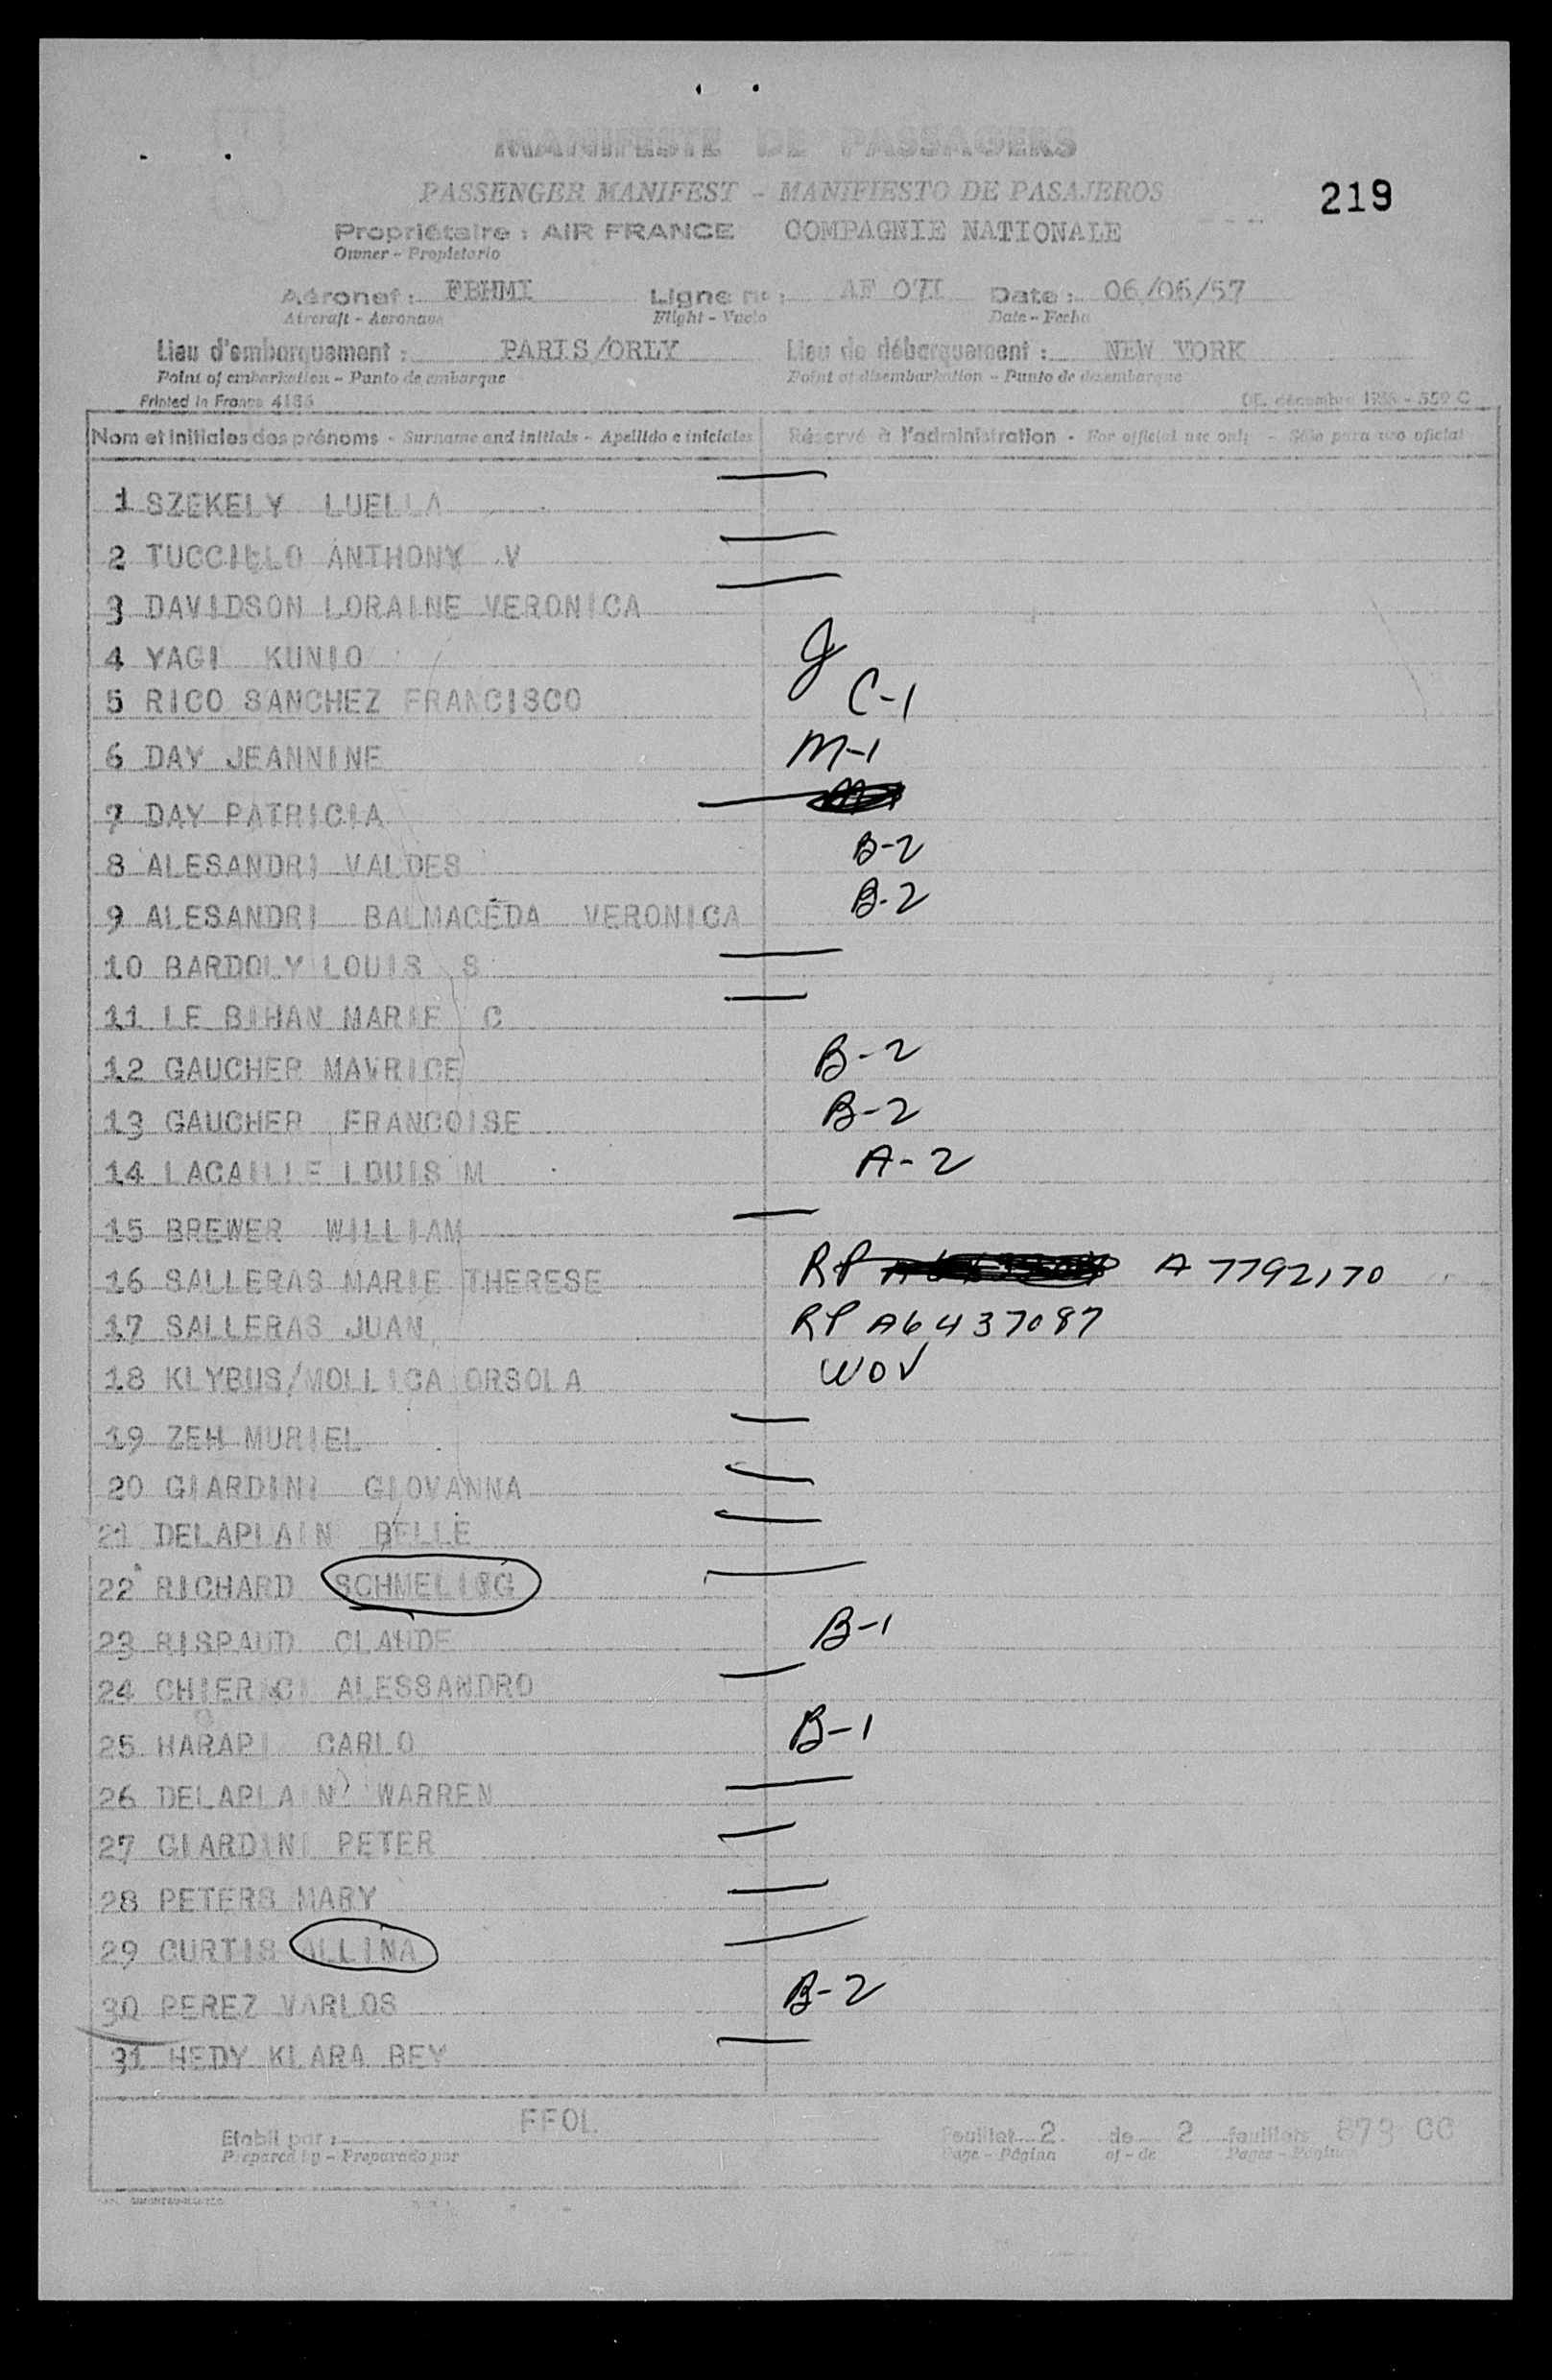 MANIFESTE DE PASSAGERS
PASSENGER MANIFEST - MANIFIESTO DE PASAJEROS
219
Propriétaire : AIR FRANCE COMPAGNIE NATIONALE
Owner - Propietario
Aéronef : FBHMI Ligne no : AF 071 Date : 06/06/57
Aircraft - Aeronave Flight - Vuelo Date - Fecha
Lieu d'embarquement : PARIS/ORLY Lieu de débarquement : NEW YORK
Point of embarkation - Punto de embarque Point of disembarkation - Punto de desembarque
Printed in France 4186 OE. décembre
Nom et initiales des prénoms - Surname and initials - Apellido e iniciales Réservé à l'administration - For official use only - Sólo para uso oficial
1 SZEKELY LUELLA —
2 TUCCILLO ANTHONY V —
3 DAVIDSON LORAINE VERONICA —
4 YAGI KUNIO J
5 RICO SANCHEZ FRANCISCO C-1
6 DAY JEANNINE M-1
7 DAY PATRICIA —
8 ALESANDRI VALDES B-2
9 ALESANDRI BALMACEDA VERONICA B-2
10 BARDOLY LOUIS S —
11 LE BIHAN MARIE C —
12 GAUCHER MAVRICE B-2
13 GAUCHER FRANCOISE B-2
14 LACAILLE LOUIS M A-2
15 BREWER WILLIAM —
16 SALLERAS MARIE THERESE RP A7792170
17 SALLERAS JUAN RP A6437087
18 KLYBUS/MOLLICA ORSOLA WOV
19 ZEH MURIEL —
20 GIARDINI GIOVANNA —
21 DELAPLAIN BELLE —
22 RICHARD SCHMELISG —
23 RISPAUD CLAUDE B-1
24 CHIERICI ALESSANDRO —
25 HARAPI CARLO B-1
26 DELAPLAIN WARREN —
27 GIARDINI PETER —
28 PETERS MARY —
29 CURTIS ALLINA —
30 PEREZ VARLOS B-2
31 HEDY KLARA BEY —
Etabli par : FFOL Feuillet 2 de 2 feuillets 873 CC
Prepared by - Preparado por Page - Página of - de Pages - Páginas